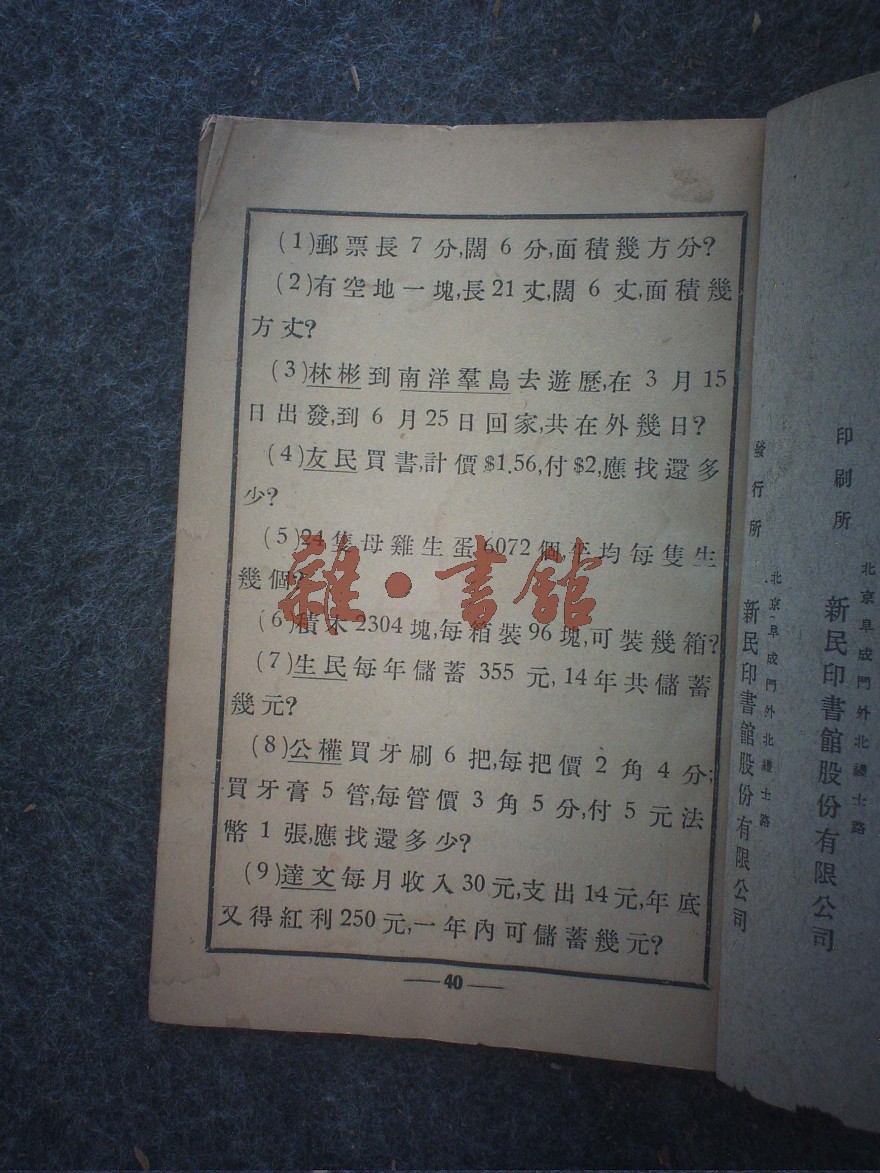 (1)郵票長7分,闊6分,面積幾方分?
(2)有空地一塊,長21丈,闊6丈,面積幾
方丈?
(3)林彬到南洋羣島去遊歷,在3月15
日出發,到6月25日回家,共在外幾日?
(4)友民買書,計價$1.56,付$2,應找還多
少?
(5)24隻母雞生蛋6072個,平均每隻生
幾個?
(6)積木2304塊,每箱裝96塊,可裝幾箱?
(7)生民每年儲蓄355元,14年共儲蓄
幾元?
(8)公權買牙刷6把,每把價2角4分;
買牙膏5管,每管價3角5分,付5元法
幣1張,應找還多少?
(9)達文每月收入30元,支出14元,年底
又得紅利250元,一年內可儲蓄幾元?
40
雜·書館
印刷所
北京阜成門外北禮士路
新民印書館股份有限公司
發行所
北京阜成門外北禮士路
新民印書館股份有限公司